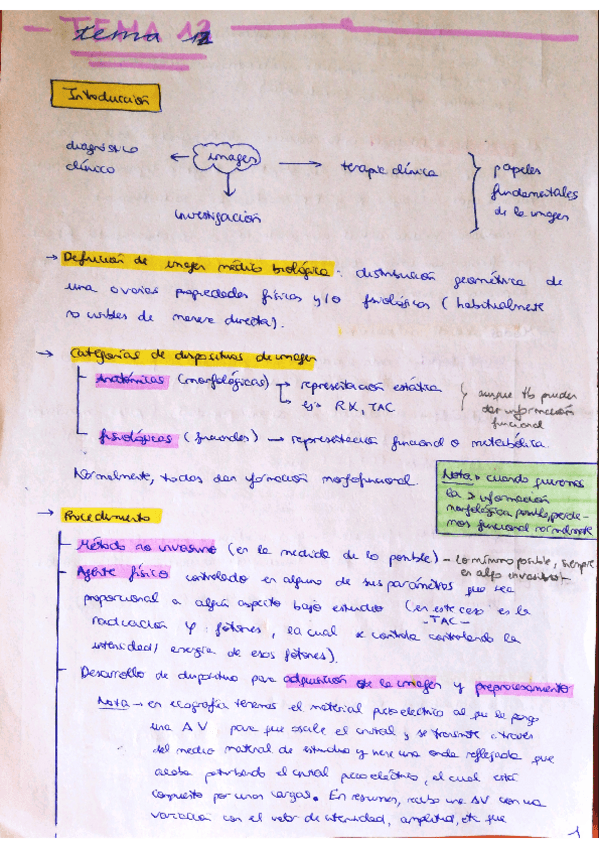 TEMA 12
tema 12
Introducción
diagnóstico clínico ← imagen → terapia clínica
investigación
papeles fundamentales de la imagen
→ Definición de imagen médico biológica: distribución geométrica de
una o varias propiedades físicas y/o fisiológicas (habitualmente
no visibles de manera directa).
→ Categorías de dispositivos de imagen
Anatómicas (morfológicas) → representación estática
→ ej: RX, TAC
aunque tb pueden dar información funcional
fisiológicas (funcionales) → representación funcional o metabólica.
Normalmente, todos dan información morfofuncional.
Nota → cuando queremos
la > información
morfológica posible, perde-
mos funcional normalmente
→ Procedimiento
Método no invasivo (en la medida de lo posible) - lo mínimo posible, siempre
es algo invasivo -
Agente físico controlado en alguno de sus parámetros que sea
proporcional a algún aspecto bajo estudio (en este caso es la
-TAC-
radiación φ: fotones, la cual se controla controlando la
intensidad/energía de esos fotones).
Desarrollo de dispositivo para adquisición de la imagen y preprocesamiento
Nota → en ecografía tenemos el material piezoeléctrico al que se pongo
una ΔV para que oscile el cristal y se transmite a través
del medio material de estudio y viene una onda reflejada que
acaba perturbando el cristal piezoeléctrico, el cual está
compuesto por unas cargas. En resumen, recibo una ΔV con una
variación con el valor de intensidad, amplitud, etc que
1